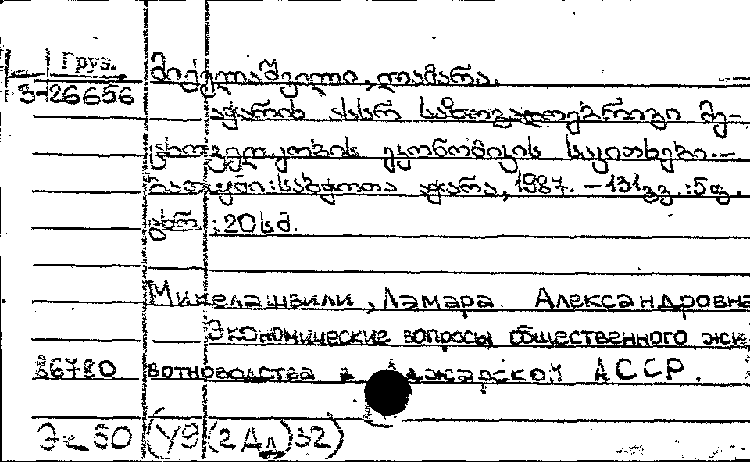 Груз.
მიქელაშვილი, ლამარა.
3-26656
აჭარის ასსრ საზოგადოებრივი მე-
ცხოველეობის ეკონომიკის საკითხები.—
ბათუმი: საბჭოთა აჭარა, 1987. – 131 გვ. : 5 ფ.
ცხრ. ; 20 სმ.
Микелашвили, Ламара Александровна
Экономические вопросы общественного жи-
86780 вотноводства в Аджарской АССР.
Э-50 (У9(2Ад)32)